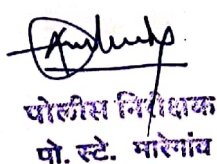 पोलीस निरीक्षक
पो. स्टे. मारेगांव